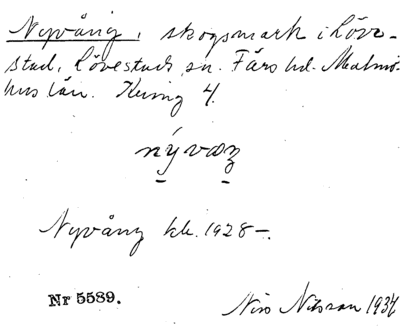 Nyvång, skogsmark i Löve-
stad, Lövestads sn. Färs hd. Malmö-
hus län. Kumg 4.
nývæŋ
Nyvång kk. 1928-.
Nr 5589.
Nils Nilsson 1934